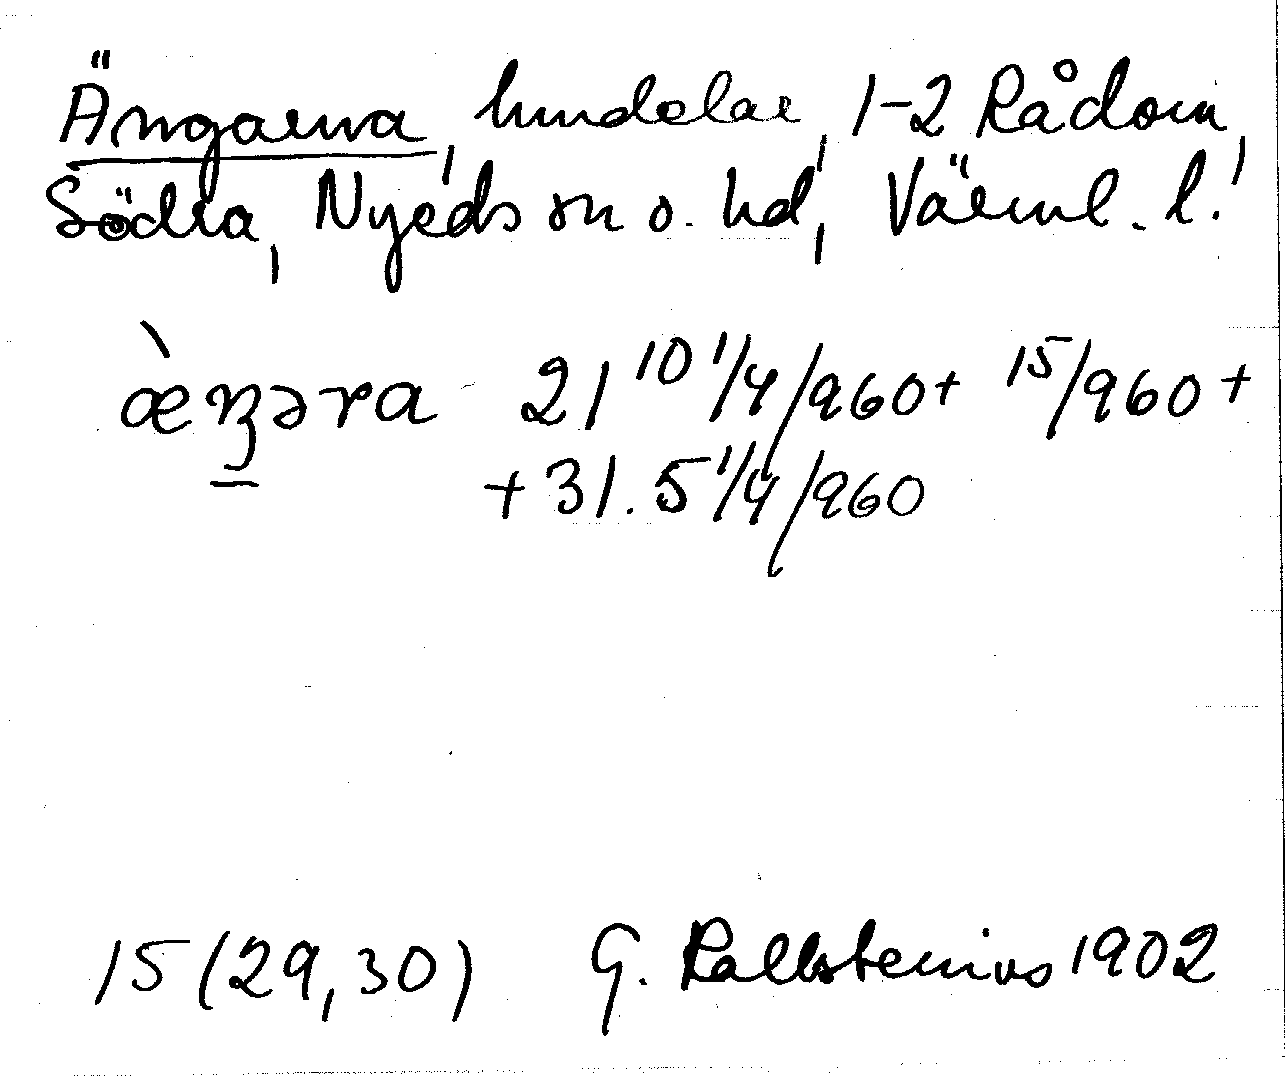 Ängarna, hmdelar, 1-2 Rådom,
Södra, Nyeds sn o. hd, Värml. l.
21 10 1/4/960+ 15/960+
+31. 5 1/4/960
15 (29,30) G. Kallstenius 1902